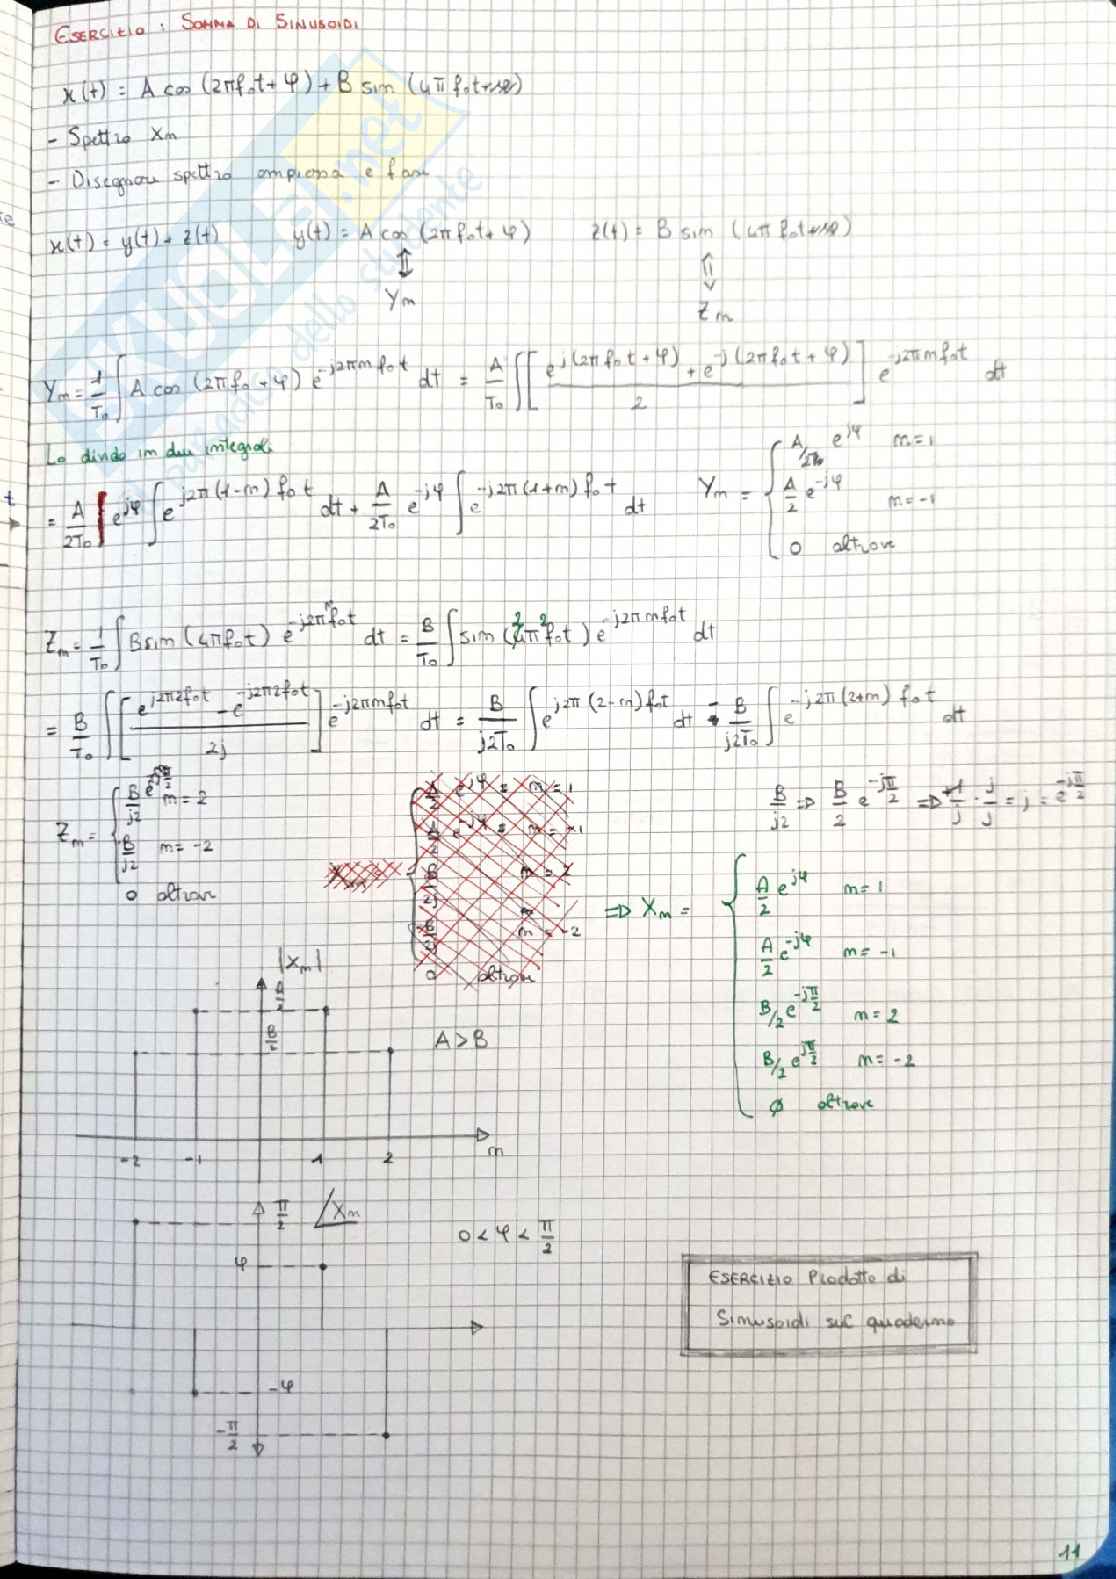 ESERCIZIO : SOMMA DI SINUSOIDI
x(t) = A cos (2πf₀t + φ) + B sin (4πf₀t
- Spettro Xm
- Disegnare spettro ampiezza e fase
x(t) = y(t) + z(t) y(t) = A cos (2πf₀t + φ) z(t) = B sin (4πf₀t
Ym Zm
Ym = 1/T₀ ∫ A cos (2πf₀ + φ) e^{-j2πmf₀t} dt = A/T₀ ∫ [ (e^{j(2πf₀t+φ)} + e^{-j(2πf₀t+φ)}) / 2 ] e^{-j2πmf₀t} dt
Lo divido in due integrali
= A/2T₀ e^{jφ} ∫ e^{j2π(1-m)f₀t} dt + A/2T₀ e^{-jφ} ∫ e^{-j2π(1+m)f₀t} dt Ym = { A/2 e^{jφ} m = 1
A/2 e^{-jφ} m = -1
0 altrove
Zm = 1/T₀ ∫ B sin (4πf₀t) e^{-j2πmf₀t} dt = B/T₀ ∫ sin (2π2f₀t) e^{-j2πmf₀t} dt
= B/T₀ ∫ [ (e^{j2π2f₀t} - e^{-j2π2f₀t}) / 2j ] e^{-j2πmf₀t} dt = B/j2T₀ ∫ e^{j2π(2-m)f₀t} dt - B/j2T₀ ∫ e^{-j2π(2+m)f₀t} dt
Zm = { B/j2 m = 2
B/j2 m = -2
0 altrove
B/j2 ⇒ B/2 e^{-jπ/2} ⇒ 1/j · j/j = j = e^{-jπ/2}
⇒ Xm = { A/2 e^{jφ} m = 1
A/2 e^{-jφ} m = -1
B/2 e^{-jπ/2} m = 2
B/2 e^{jπ/2} m = -2
∅ altrove
|Xm|
A/2
B/2
A > B
-2 -1 1 2 m
π/2 /Xm
0 < φ < π/2
φ
-φ
-π/2
ESERCIZIO Prodotto di
Sinusoidi sul quaderno
11